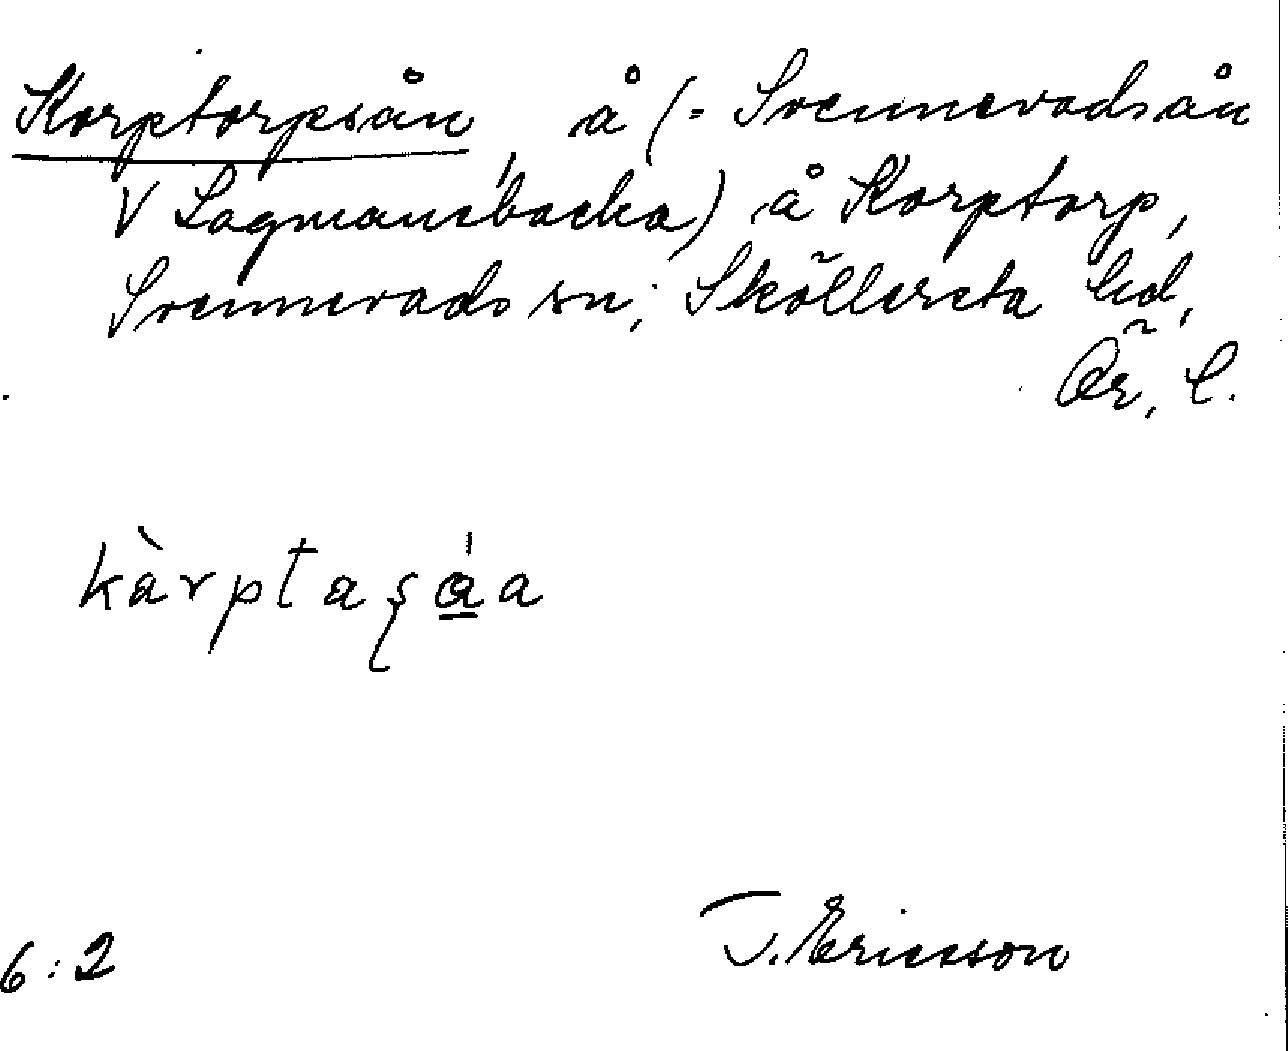 Korptorpsån, å (= Svennevadsån
V Lagmansbacka) å Korptorp,
Svennevads sn; Sköllersta hd,
Ör. l.
kàrptaşáa
6:2
T. Ericsson